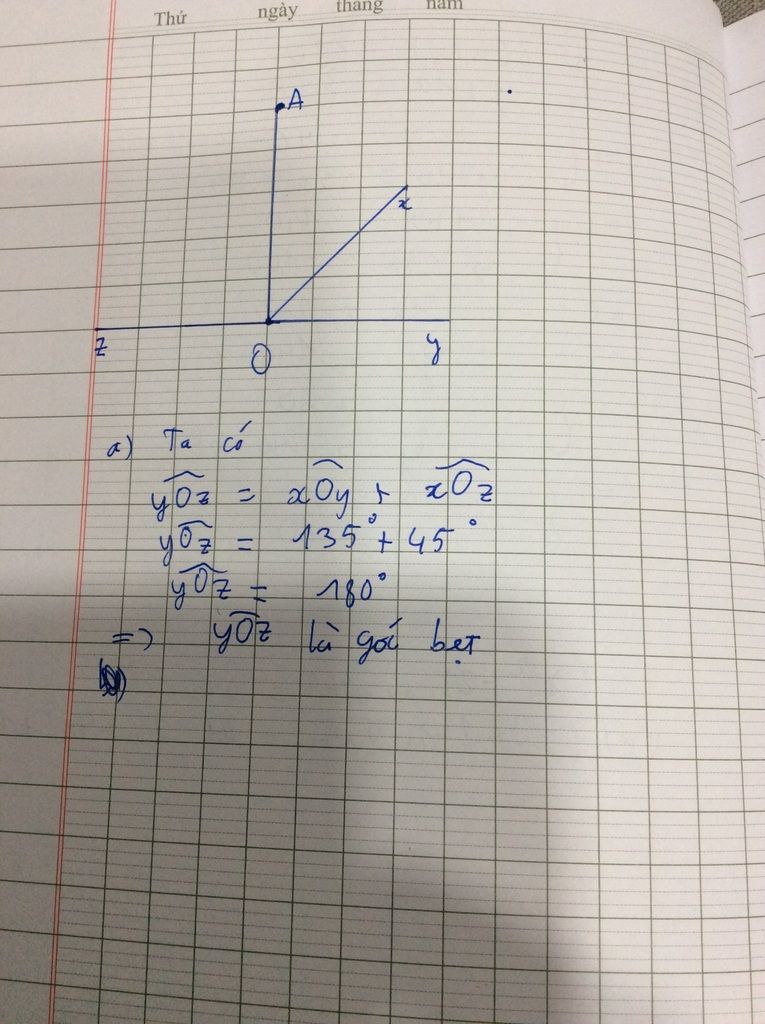 Thứ ngày tháng năm
A
x
z O y
a) Ta có
yOz = xOy + xOz
yOz = 135° + 45°
yOz = 180°
=> yOz là goí bẹt